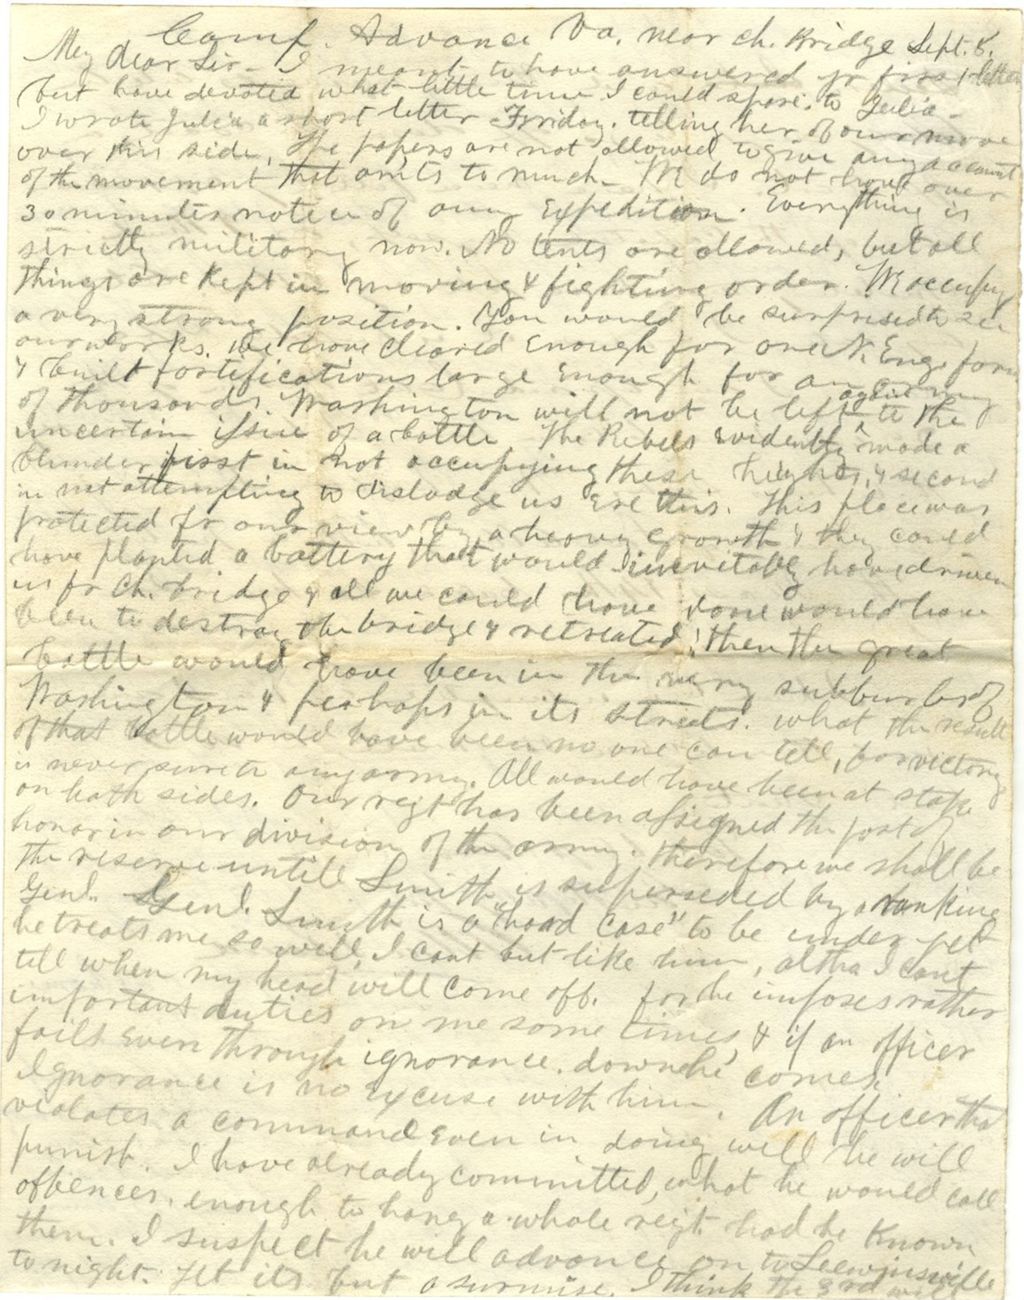 Camp. Advance Va. near Ch. Bridge Sept. 8.
My dear Sir - I meant to have answered yr first letter
but have devoted what little time I could spare to Julia -
I wrote Julia a short letter Friday. telling her of our move
over this side. The papers are not allowed to give any account
of the movement that amts to much - We do not have over
30 minutes notice of any Expedition. Everything is
strictly military now. No tents are allowed, but all
things are kept in moving & fighting order. We occupy
a very strong position. You would be surprised to see
our works. We have cleared enough for one N. Eng. farm
& built fortifications large enough for an army
of thousands. Washington will not be left again to the
uncertain issue of a battle. The Rebels evidently made a
blunder first in not occupying these heights, & second
in not attempting to dislodge us ere this. This place was
protected fr our view by a heavy growth & they could
have planted a battery that would inevitably have driven
us fr Ch. bridge & all we could have done would have
been to destroy the bridge & retreated! then the great
battle would have been in the very subburbs of
Washington & perhaps in its streets. what the result
of that battle would have been no one can tell, for victory
is never sure to any army. All would have been at stake
on both sides. Our regt has been assigned the post of
honor in our division of the army. therefore we shall be
the reserve until Smith is superseded by a ranking
Genl. Genl. Smith is a "hard case" to be under yet
he treats me so well, I cant but like him, altho I cant
tell when my head will come off. for he imposes rather
important duties on me some times & if an officer
fails even through ignorance. down he comes.
Ignorance is no excuse with him. An officer that
violates a command even in doing well he will
punish. I have already committed, what he would call
offences. enough to hang a whole regt. had he known
them. I suspect he will advance on to Leewinsville
to night. Yet its but a surmise. I think the 3rd will